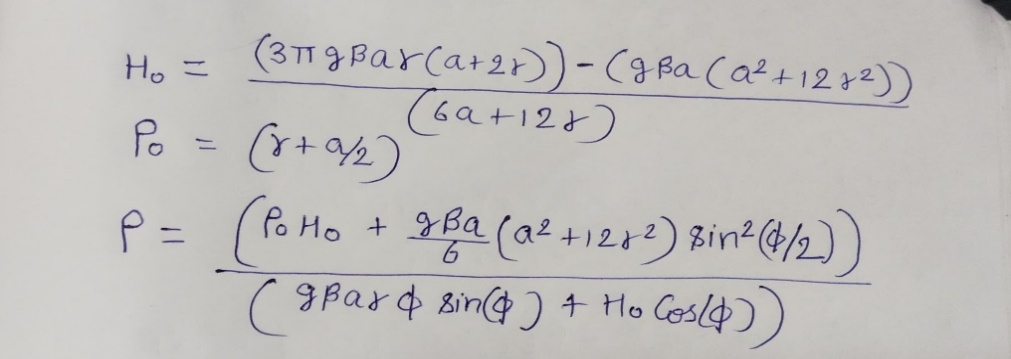 H₀ = (3πgβar(a+2r)) - (gβa(a²+12r²)) / (6a+12r)
ρ₀ = (r+a/2)
ρ = (ρ₀H₀ + gβa/6 (a²+12r²) sin²(ϕ/2)) / (gβarϕ sin(ϕ) + H₀ Cos(ϕ))